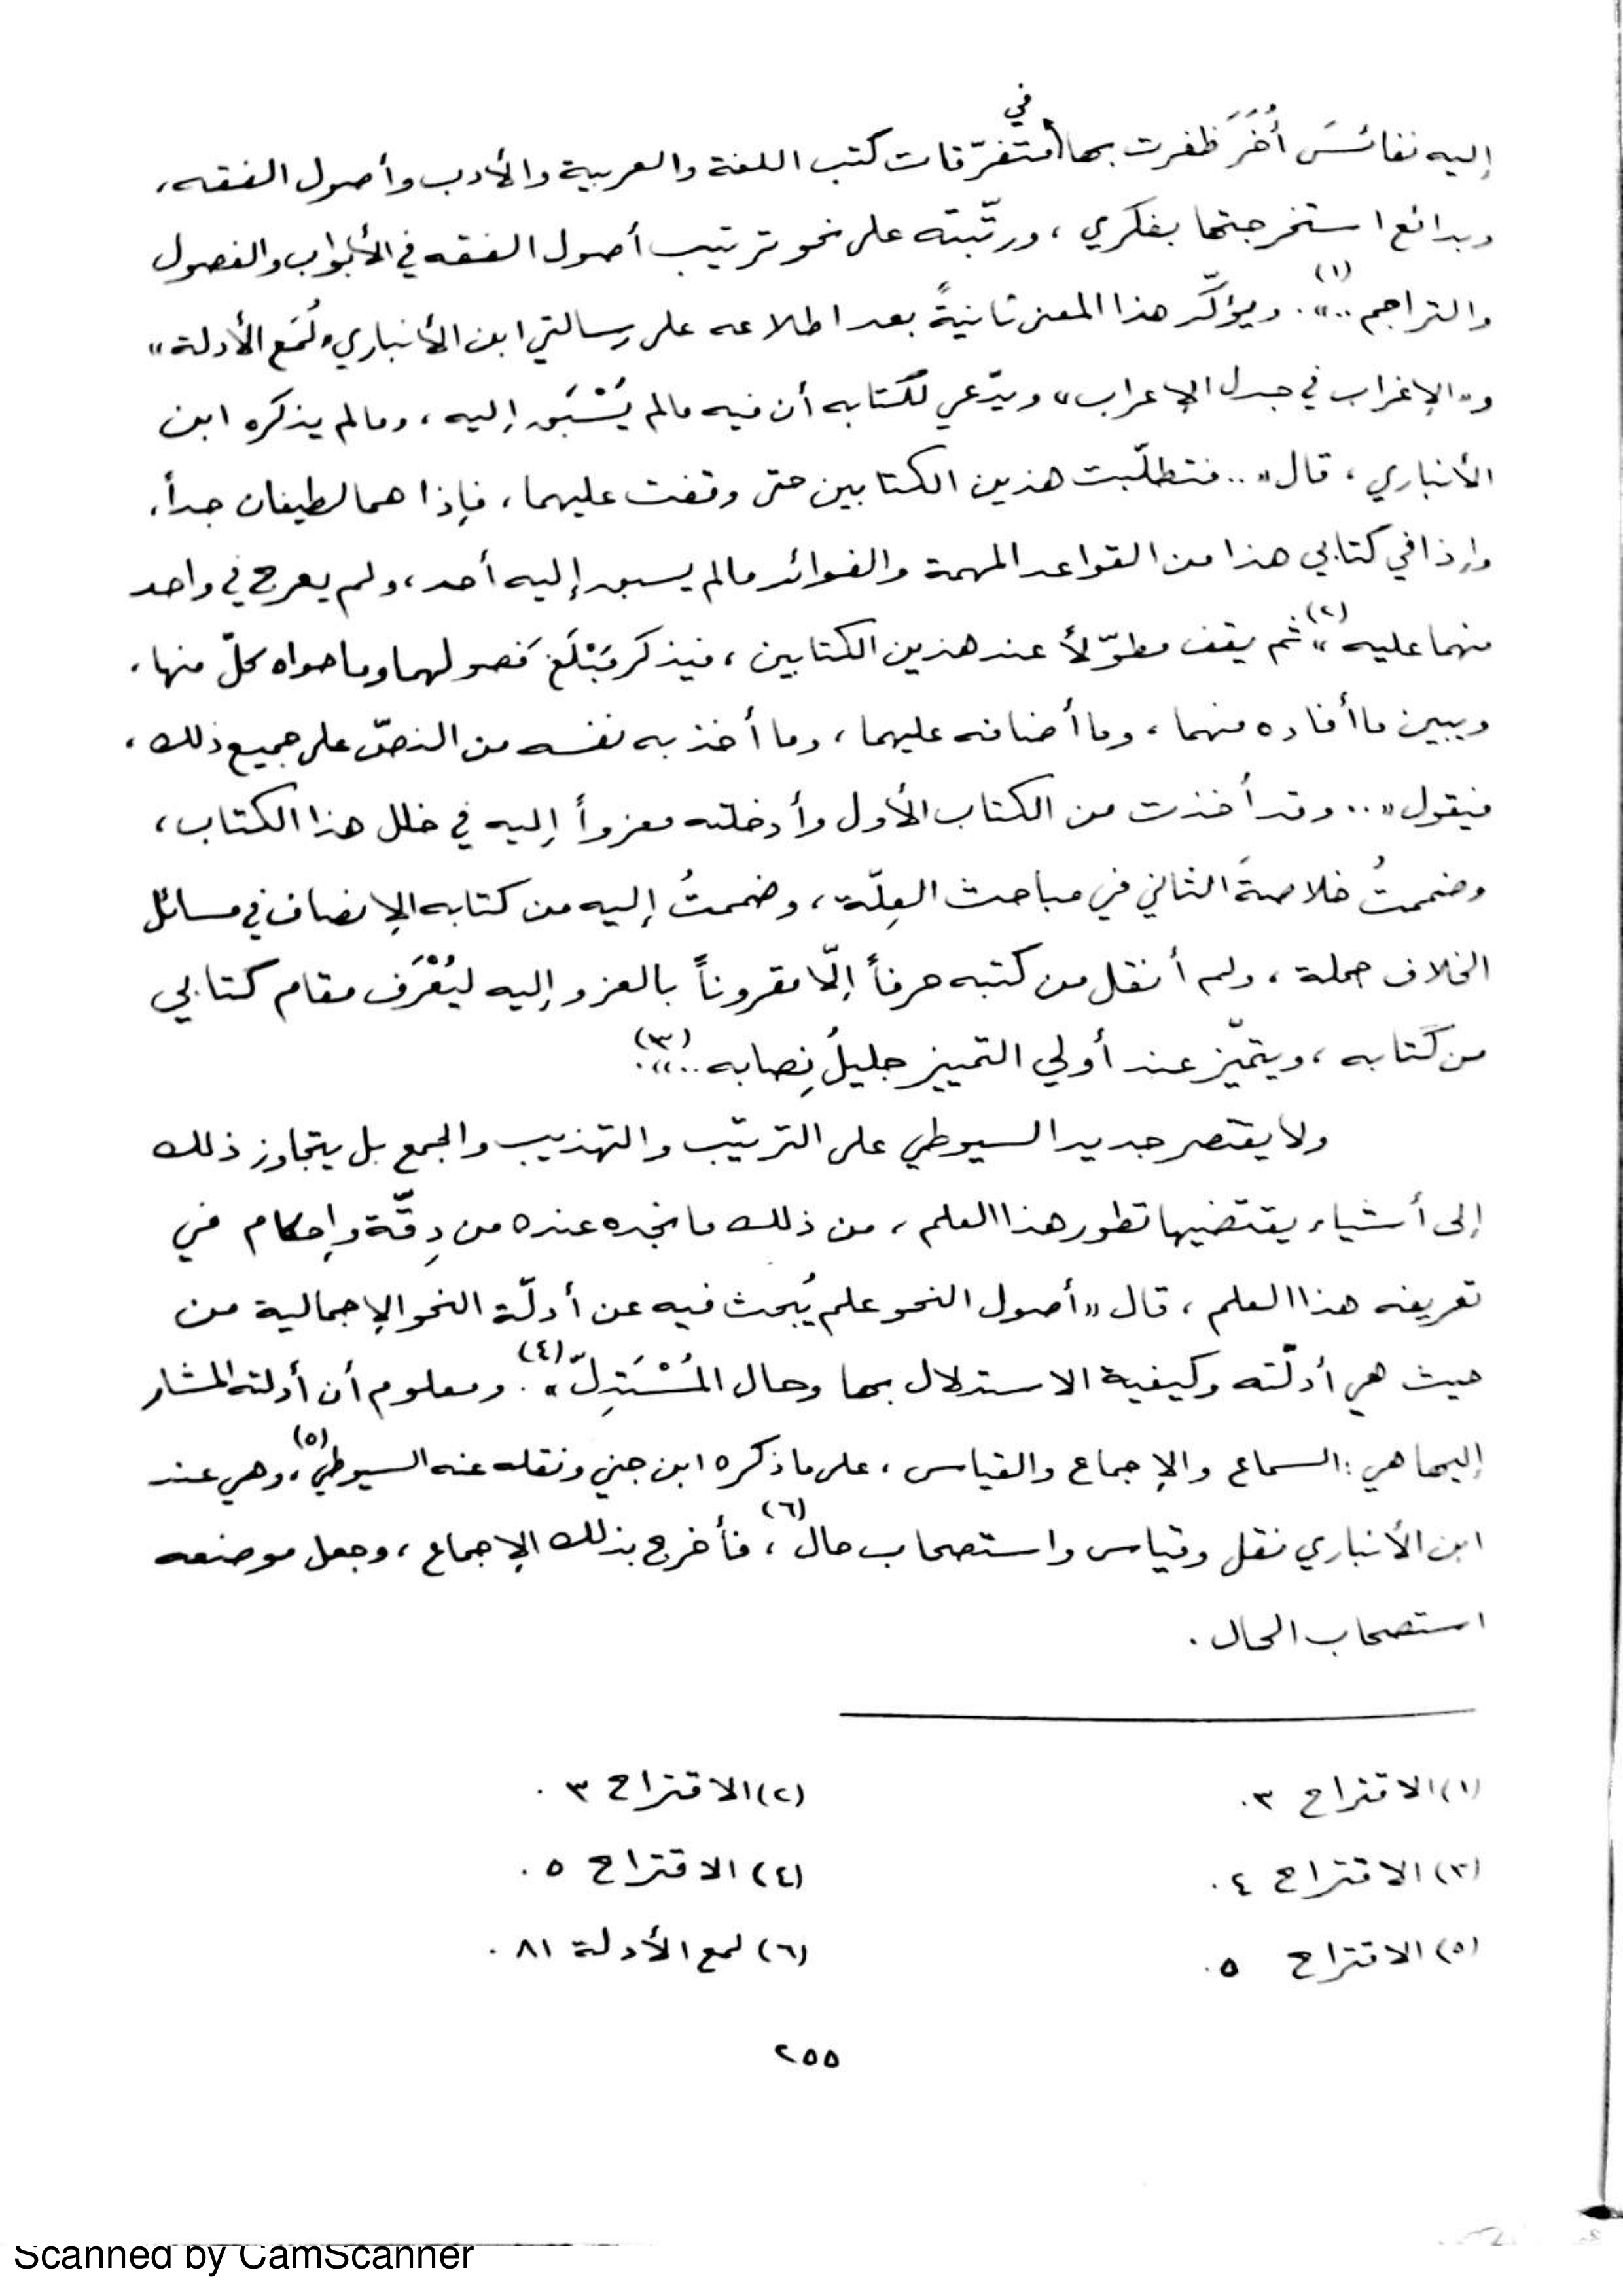 إليه نفائسَ أُخَرَ ظفرت بها في متفرّقات كتب اللغة والعربية والأدب وأصول الفقه،
وبدائع استخرجتها بفكري، ورتّبته على نحو ترتيب أصول الفقه في الأبواب والفصول
والتراجم..»(١). ويؤكّد هذا المعنى ثانيةً بعد اطلاعه على رسالتي ابن الأنباري «لُمَع الأدلة»
و«الإغراب في جدل الإعراب» ويدّعي لكتابه أن فيه مالم يُسْبَق إليه، ومالم يذكره ابن
الأنباري، قال «..فتطلّبت هذين الكتابين حتى وقفت عليهما، فإذا هما لطيفان جداً،
وإذا في كتابي هذا من القواعد المهمة والفوائد مالم يسبق إليه أحد، ولم يعرج في واحد
منهما عليه»(٢). ثم يقف مطوّلاً عند هذين الكتابين، فيذكر مَبْلَغ فصولهما وما حواه كلّ منها،
ويبين ما أفاده منهما، وما أضافه عليهما، وما أخذ به نفسه من النصّ على جميع ذلك،
فيقول «.. وقد أخذت من الكتاب الأول وأدخلته معزواً إليه في خلل هذا الكتاب،
وضممتُ خلاصةَ الثاني في مباحث العِلّة، وضممتُ إليه من كتابه الإنصاف في مسائل
الخلاف جملة، ولم أنقل من كتبه حرفاً إلّا مقروناً بالعزو إليه ليُعْرَف مقام كتابي
من كتابه، ويتميّز عند أولي التمييز جليلُ نِصابه..»(٣).
ولا يقتصر جديد السيوطي على الترتيب والتهذيب والجمع بل يتجاوز ذلك
إلى أشياء يقتضيها تطور هذا العلم، من ذلك ما نجده عنده من دِقّة وإحكام في
تعريفه هذا العلم، قال «أصول النحو علم يُبحث فيه عن أدلّة النحو الإجمالية من
حيث هي أدلّته وكيفية الاستدلال بها وحال المُسْتَدِلّ»(٤). ومعلوم أن أدلته المشار
إليها هي: السماع والإجماع والقياس، على ما ذكره ابن جني ونقله عنه السيوطي(٥)، وهي عند
ابن الأنباري نقل وقياس واستصحاب حال(٦)، فأخرج بذلك الإجماع، وجعل موضعه
استصحاب الحال.
(١) الاقتراح ٣.
(٢) الاقتراح ٣.
(٣) الاقتراح ٤.
(٤) الاقتراح ٥.
(٥) الاقتراح ٥.
(٦) لمع الأدلة ٨١.
٢٥٥
Scanned by CamScanner